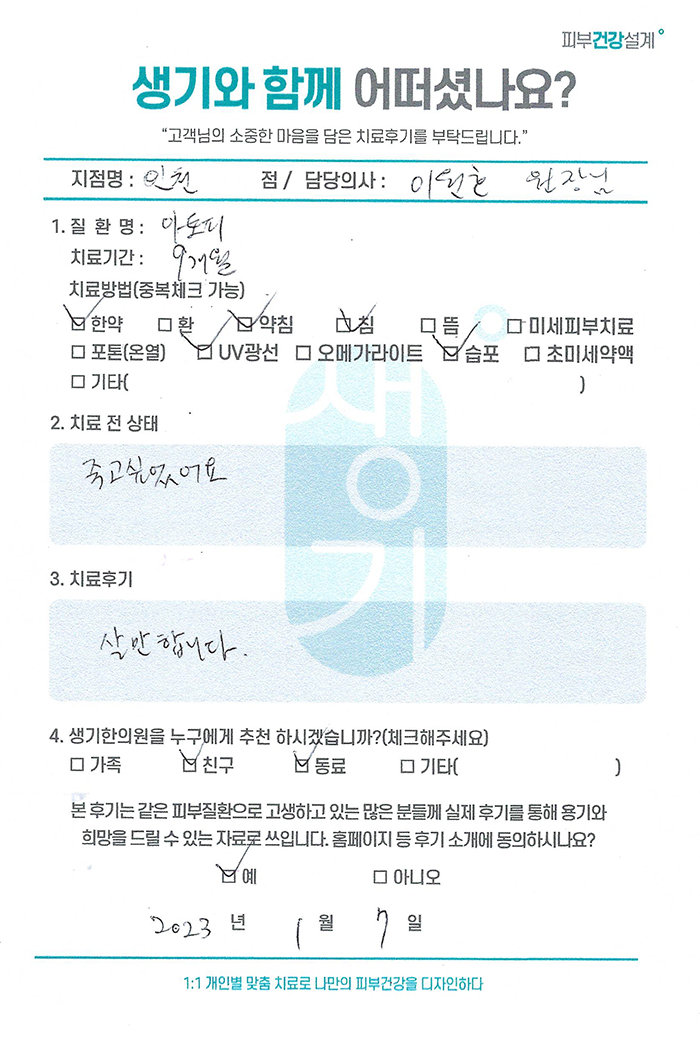 피부건강설계
생기와 함께 어떠셨나요?
“고객님의 소중한 마음을 담은 치료후기를 부탁드립니다.”
지점명 : 인천 점 / 담당의사 : 이원호 원장님
1. 질 환 명 : 아토피
치료기간 : 9개월
치료방법(중복체크 가능)
☑ 한약 □ 환 ☑ 약침 ☑ 침 □ 뜸 □ 미세피부치료
□ 포톤(온열) ☑ UV광선 □ 오메가라이트 ☑ 습포 □ 초미세약액
□ 기타( )
2. 치료 전 상태
죽고싶었어요
3. 치료후기
살만합니다.
생기
4. 생기한의원을 누구에게 추천 하시겠습니까?(체크해주세요)
□ 가족 ☑ 친구 ☑ 동료 □ 기타( )
본 후기는 같은 피부질환으로 고생하고 있는 많은 분들께 실제 후기를 통해 용기와
희망을 드릴 수 있는 자료로 쓰입니다. 홈페이지 등 후기 소개에 동의하시나요?
☑ 예 □ 아니오
2023 년 1 월 7 일
1:1 개인별 맞춤 치료로 나만의 피부건강을 디자인하다